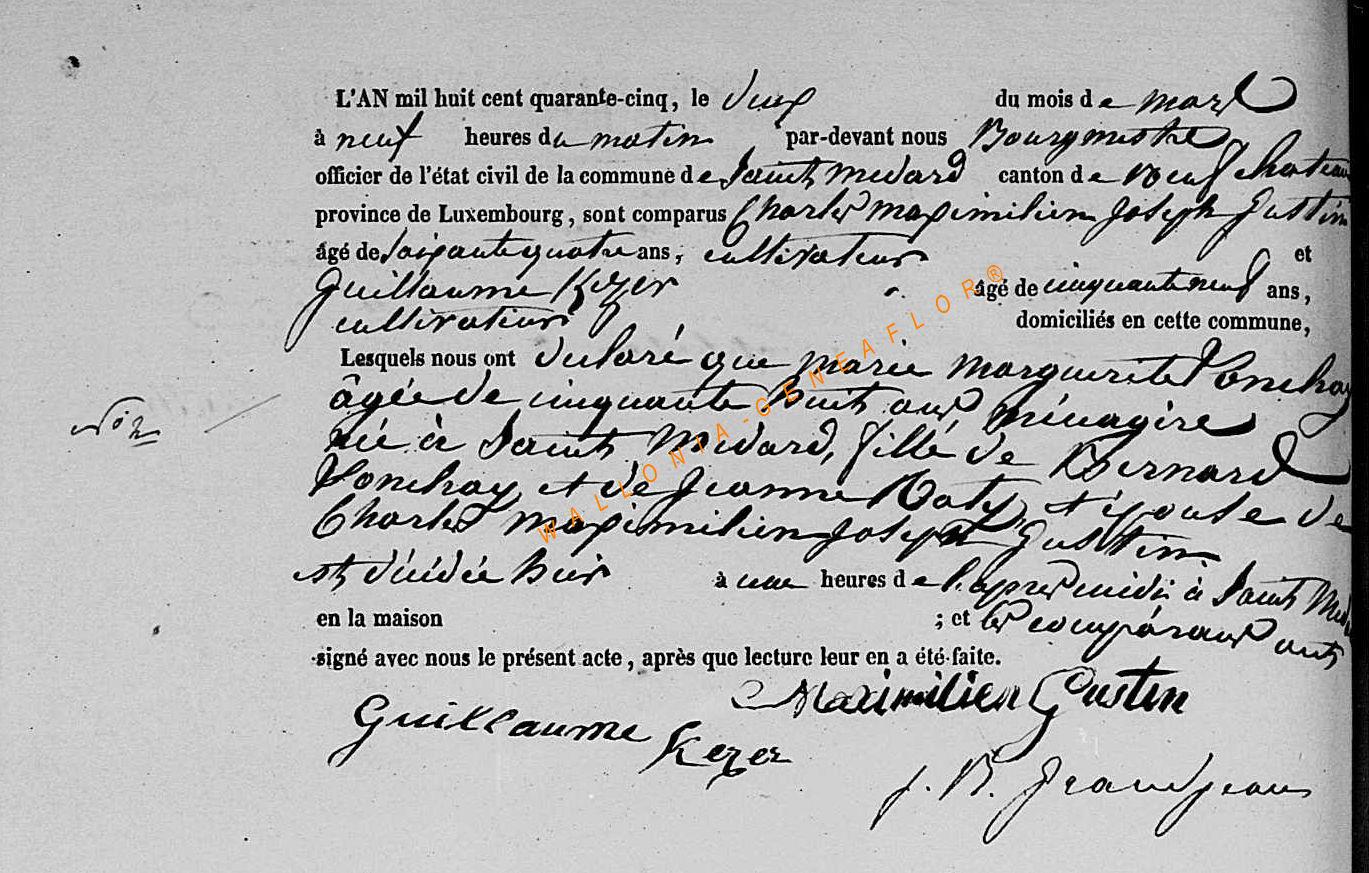 L'AN mil huit cent quarante-cinq, le deux du mois de mars
à neuf heures du matin par-devant nous Bourgmestre
officier de l'état civil de la commune de Saint Medard canton de Neufchateau
province de Luxembourg, sont comparus Charles maximilien Joseph Gustin
âgé de soixante quatre ans, cultivateur et
Guillaume Kezer âgé de cinquante neuf ans,
cultivateur domiciliés en cette commune,
Lesquels nous ont declaré que marie marguerite Vonchay
âgée de cinquante huit ans ménagère
née à Saint Medard, fille de Bernard
Vonchay et de Jeanne, et épouse de
Charles maximilien Joseph Gustin
N° 2
est décédée hier à une heures de l'apres midi à Saint Med
en la maison ; et les comparans ont
signé avec nous le présent acte, après que lecture leur en a été faite.
Maximilien Gustin
Guillaume Kezer
J. B. Grandjean
WALLONIA-GENEAFLOR®